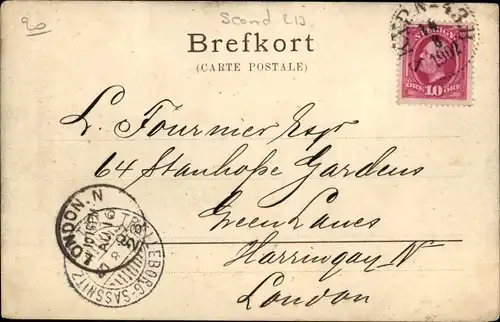 20
Brefkort
(CARTE POSTALE)
SVERIGE
ÖRE 10 ÖRE
L. Fournier Esqr
64 Stanhope Gardens
Green Lanes
Harringay N
London
LONDON. N
TRELLEBORG-SASSNITZ